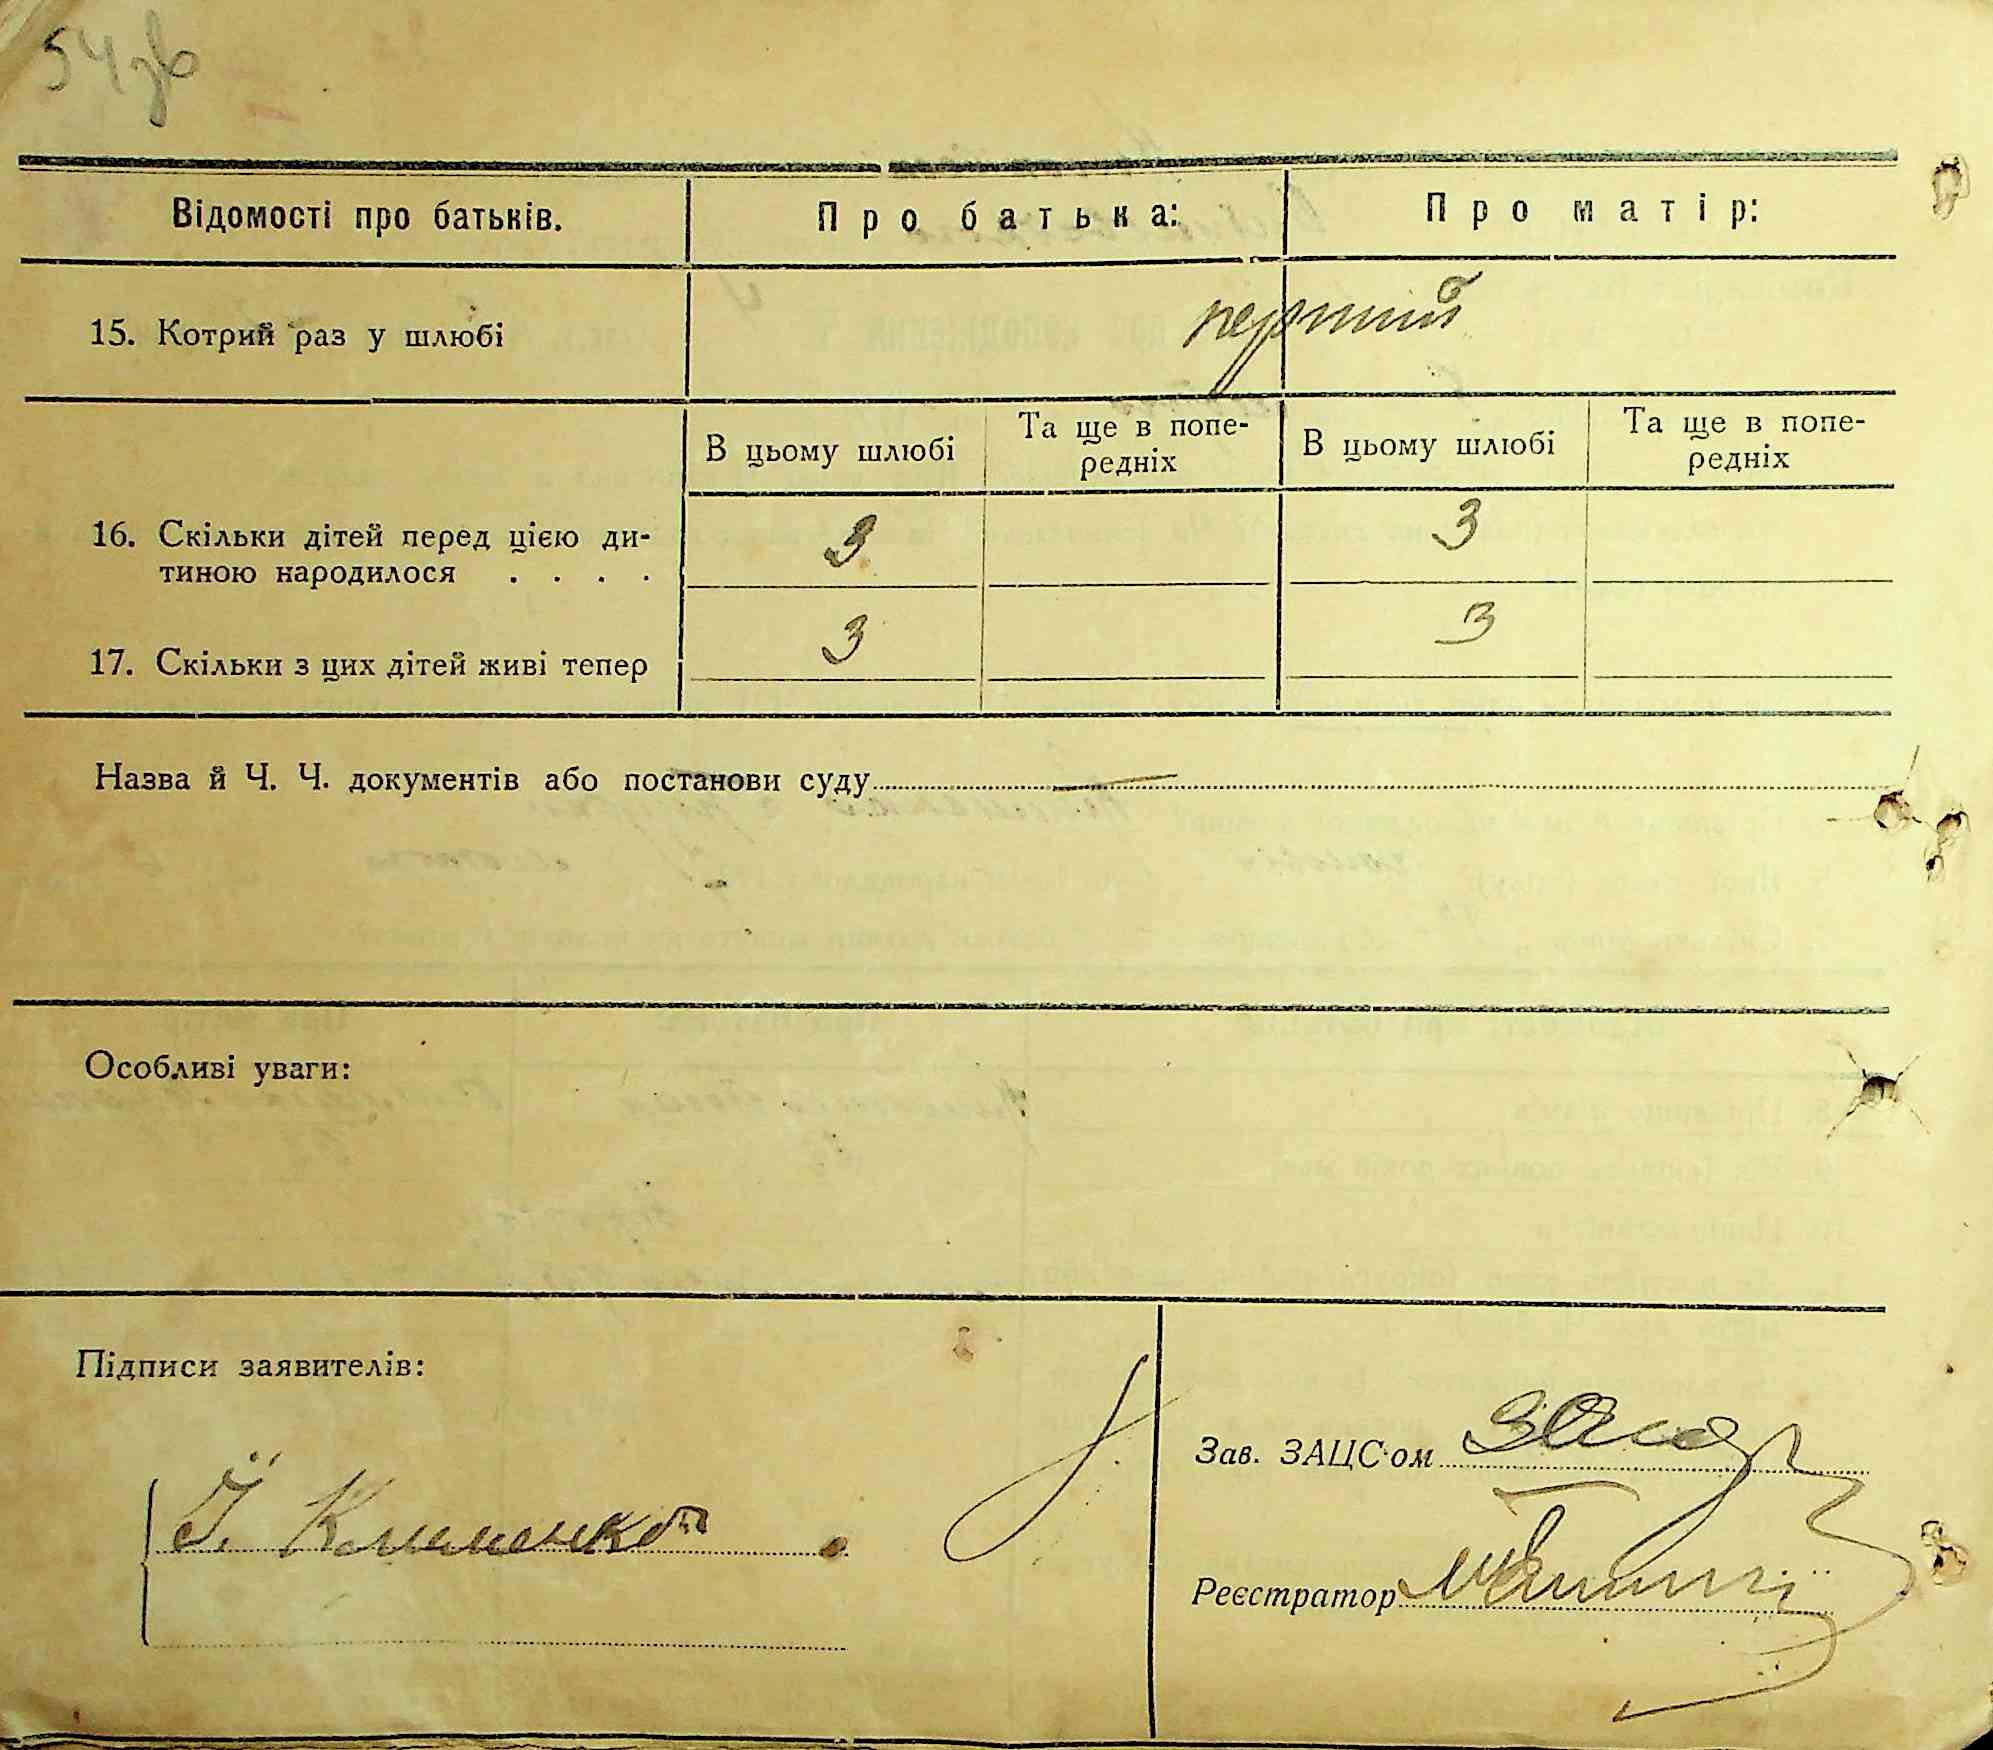 54зв
Відомості про батьків. Про батька: Про матір:
15. Котрий раз у шлюбі перший
В цьому шлюбі Та ще в попе-редніх В цьому шлюбі Та ще в попе-редніх
16. Скільки дітей перед цією ди-
тиною народилося . . . . 3 3
17. Скільки з цих дітей живі тепер 3 3
Назва й Ч. Ч. документів або постанови суду —
Особливі уваги:
Підписи заявителів:
Зав. ЗАЦС'ом
Ї. Клименко
Реєстратор